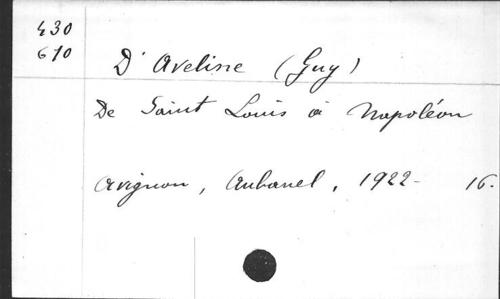 430
610
D'Aveline (Guy)
De Saint Louis à Napoléon
Avignon, Aubanel, 1922- 16.